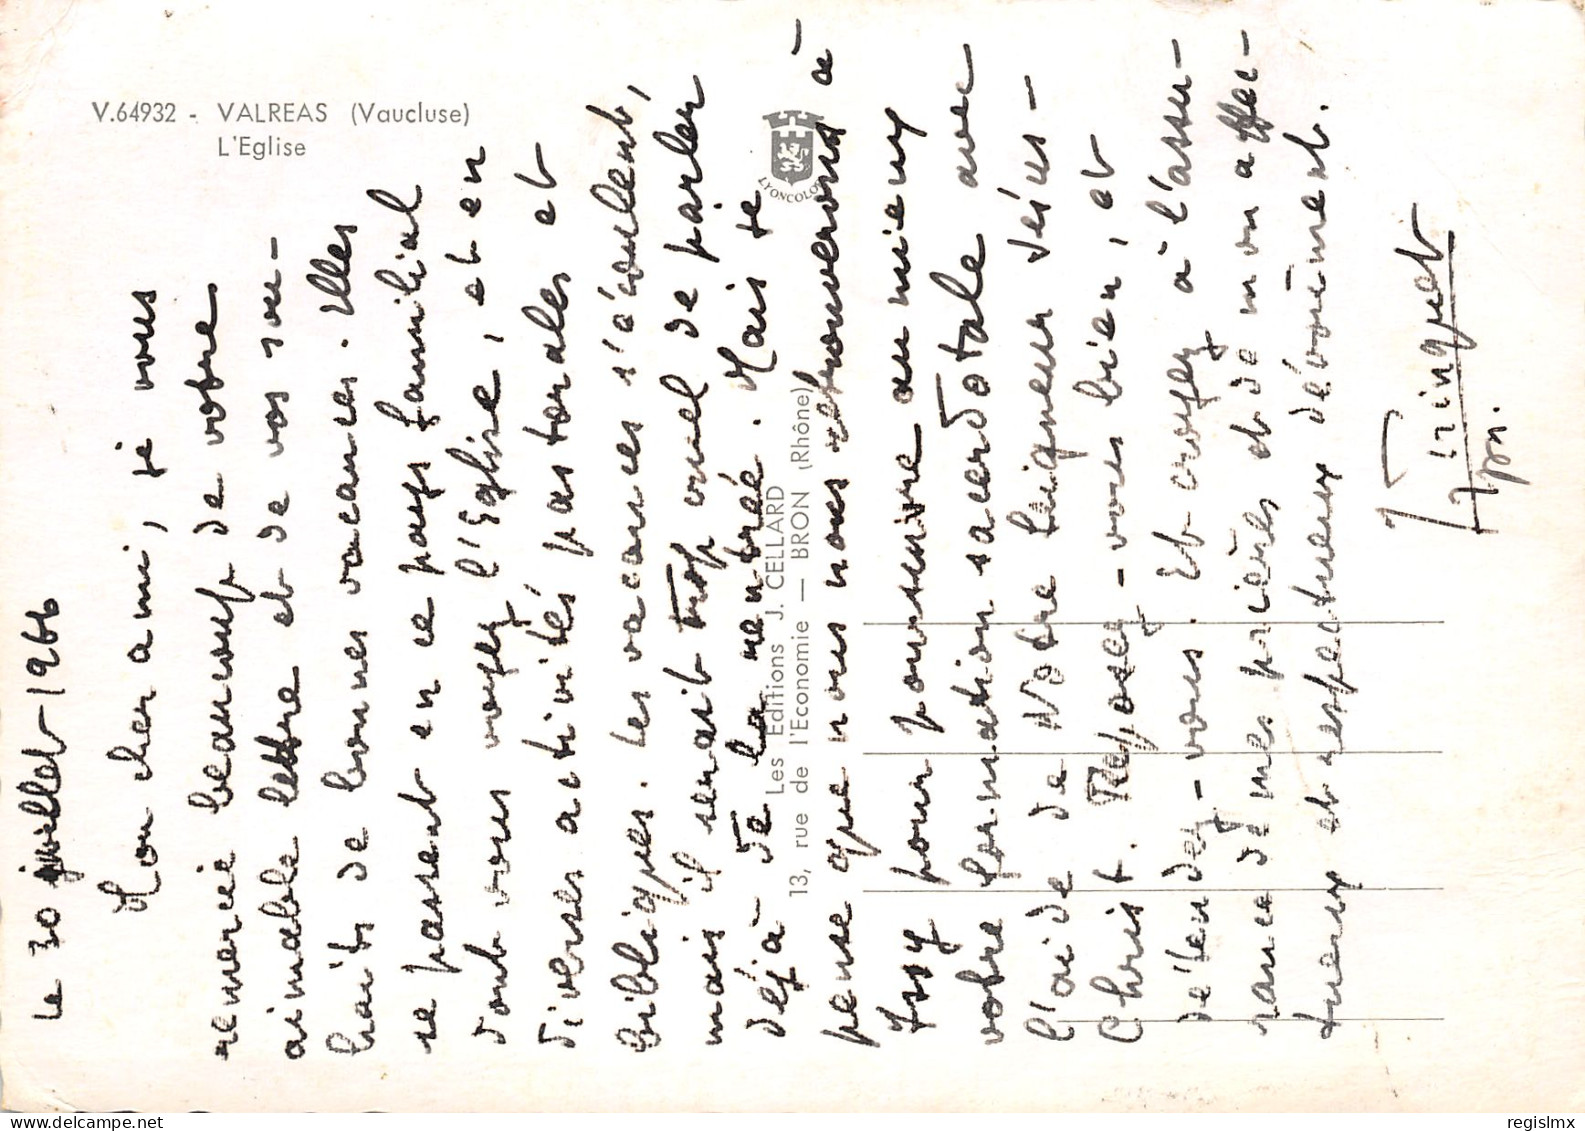 V.64932 - VALREAS (Vaucluse)
L'Eglise
LYONCOLOR
Les Editions J. CELLARD
13, rue de l'Economie — BRON (Rhône)
Le 30 juillet 1966
Mon cher ami, je vous
remercie beaucoup de votre
aimable lettre et de vos sou-
haits de bonnes vacances. Elles
se passent en ce pays familial
dont vous voyez l'Eglise, et en
diverses activités pastorales et
bibliques. Les vacances s'écoulent,
mais il serait trop cruel de parler
déjà de la rentrée. Mais je
pense que nous nous retrouverons à
Issy pour poursuivre au mieux
votre formation sacerdotale avec
l'aide de Notre Seigneur Jésus-
Christ. Reposez-vous bien, et
détendez-vous. Et croyez à l'assu-
rance de mes prières et de mon affec-
tueux et respectueux dévouement.
Trinquet